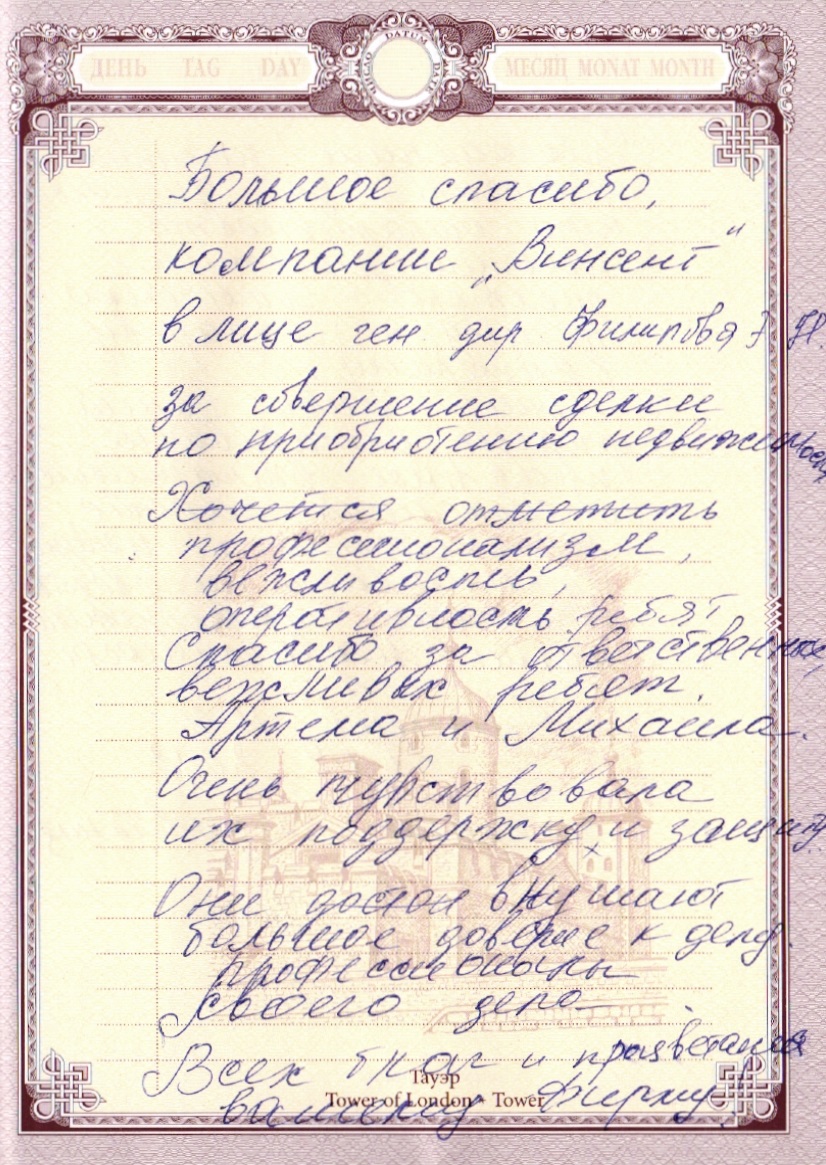 ДЕНЬ TAG DAY DATUM МЕСЯЦ MONAT MONTH
Большое спасибо,
компании „Винсент"
в лице ген дир Филиповя Э
за совершение сделки
по приобритению недвижимости
Хочется отметить
профессионализм,
вежливость,
оперативность ребят
Спасибо за ответственных
вежливых ребят.
Артема и Михаила.
Очень чувствовала
их поддержку и защиту.
Они внушают
большое доверие к делу.
профессионалы
своего дела
Всех благ и процветания
Тауэр
Tower of London - Tower
вашему Фирму!